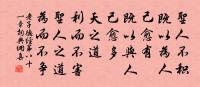 聖人不积
既以為人
己愈有
既以與人
己愈多
天之道
利而不害
聖人之道
為而不爭
老子德經第八十
一章詞典網集